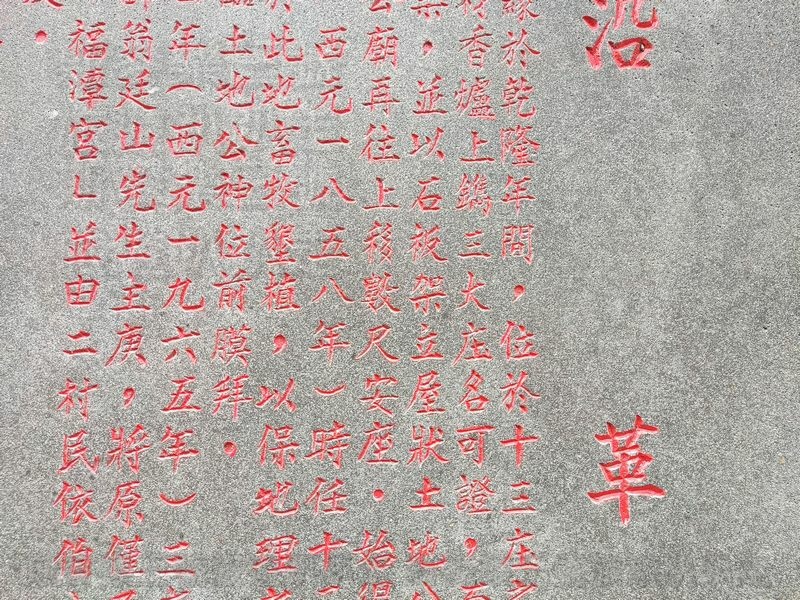 沿革
緣於乾隆年間，位於十三庄
香爐上鐫三大庄名可證，
，並以石板架立屋狀土地公
公廟再往上移數尺安座。始得
西元一八五八年）時任十
於此地畜牧墾植，以保地理
土地公神位前膜拜。
年（西元一九六五年）三
翁廷山先生主庚，將原僅
福漳宮」並由二村民依